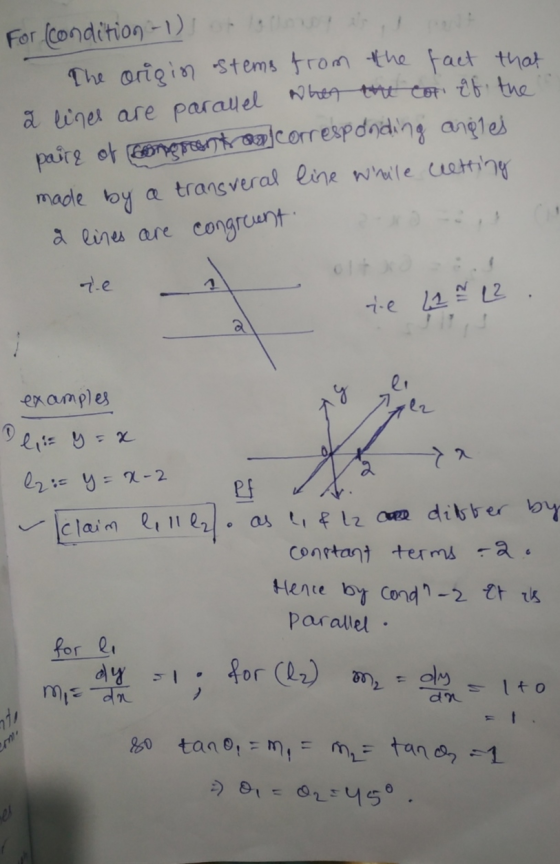 For (condition-1)
The origin stems from the fact that
2 lines are parallel when the cor. if the
pairs of corresponding angles
made by a transveral line while cutting
2 lines are congruent.
i.e
1
2
i.e ∠1 ≅ ∠2 .
examples
① l₁:= y = x
l₂:= y = x-2
y
l₁
l₂
0
2
x
Pf
✓ claim l₁ || l₂ . as L₁ & L₂ differ by
constant terms -2 .
Hence by condⁿ-2 it is
parallel .
for l₁
m₁ = dy/dx = 1 ; for (l₂) m₂ = dy/dx = 1+0
= 1 .
so tanθ₁ = m₁ = m₂ = tanθ₂ = 1
⇒ θ₁ = θ₂ = 45° .